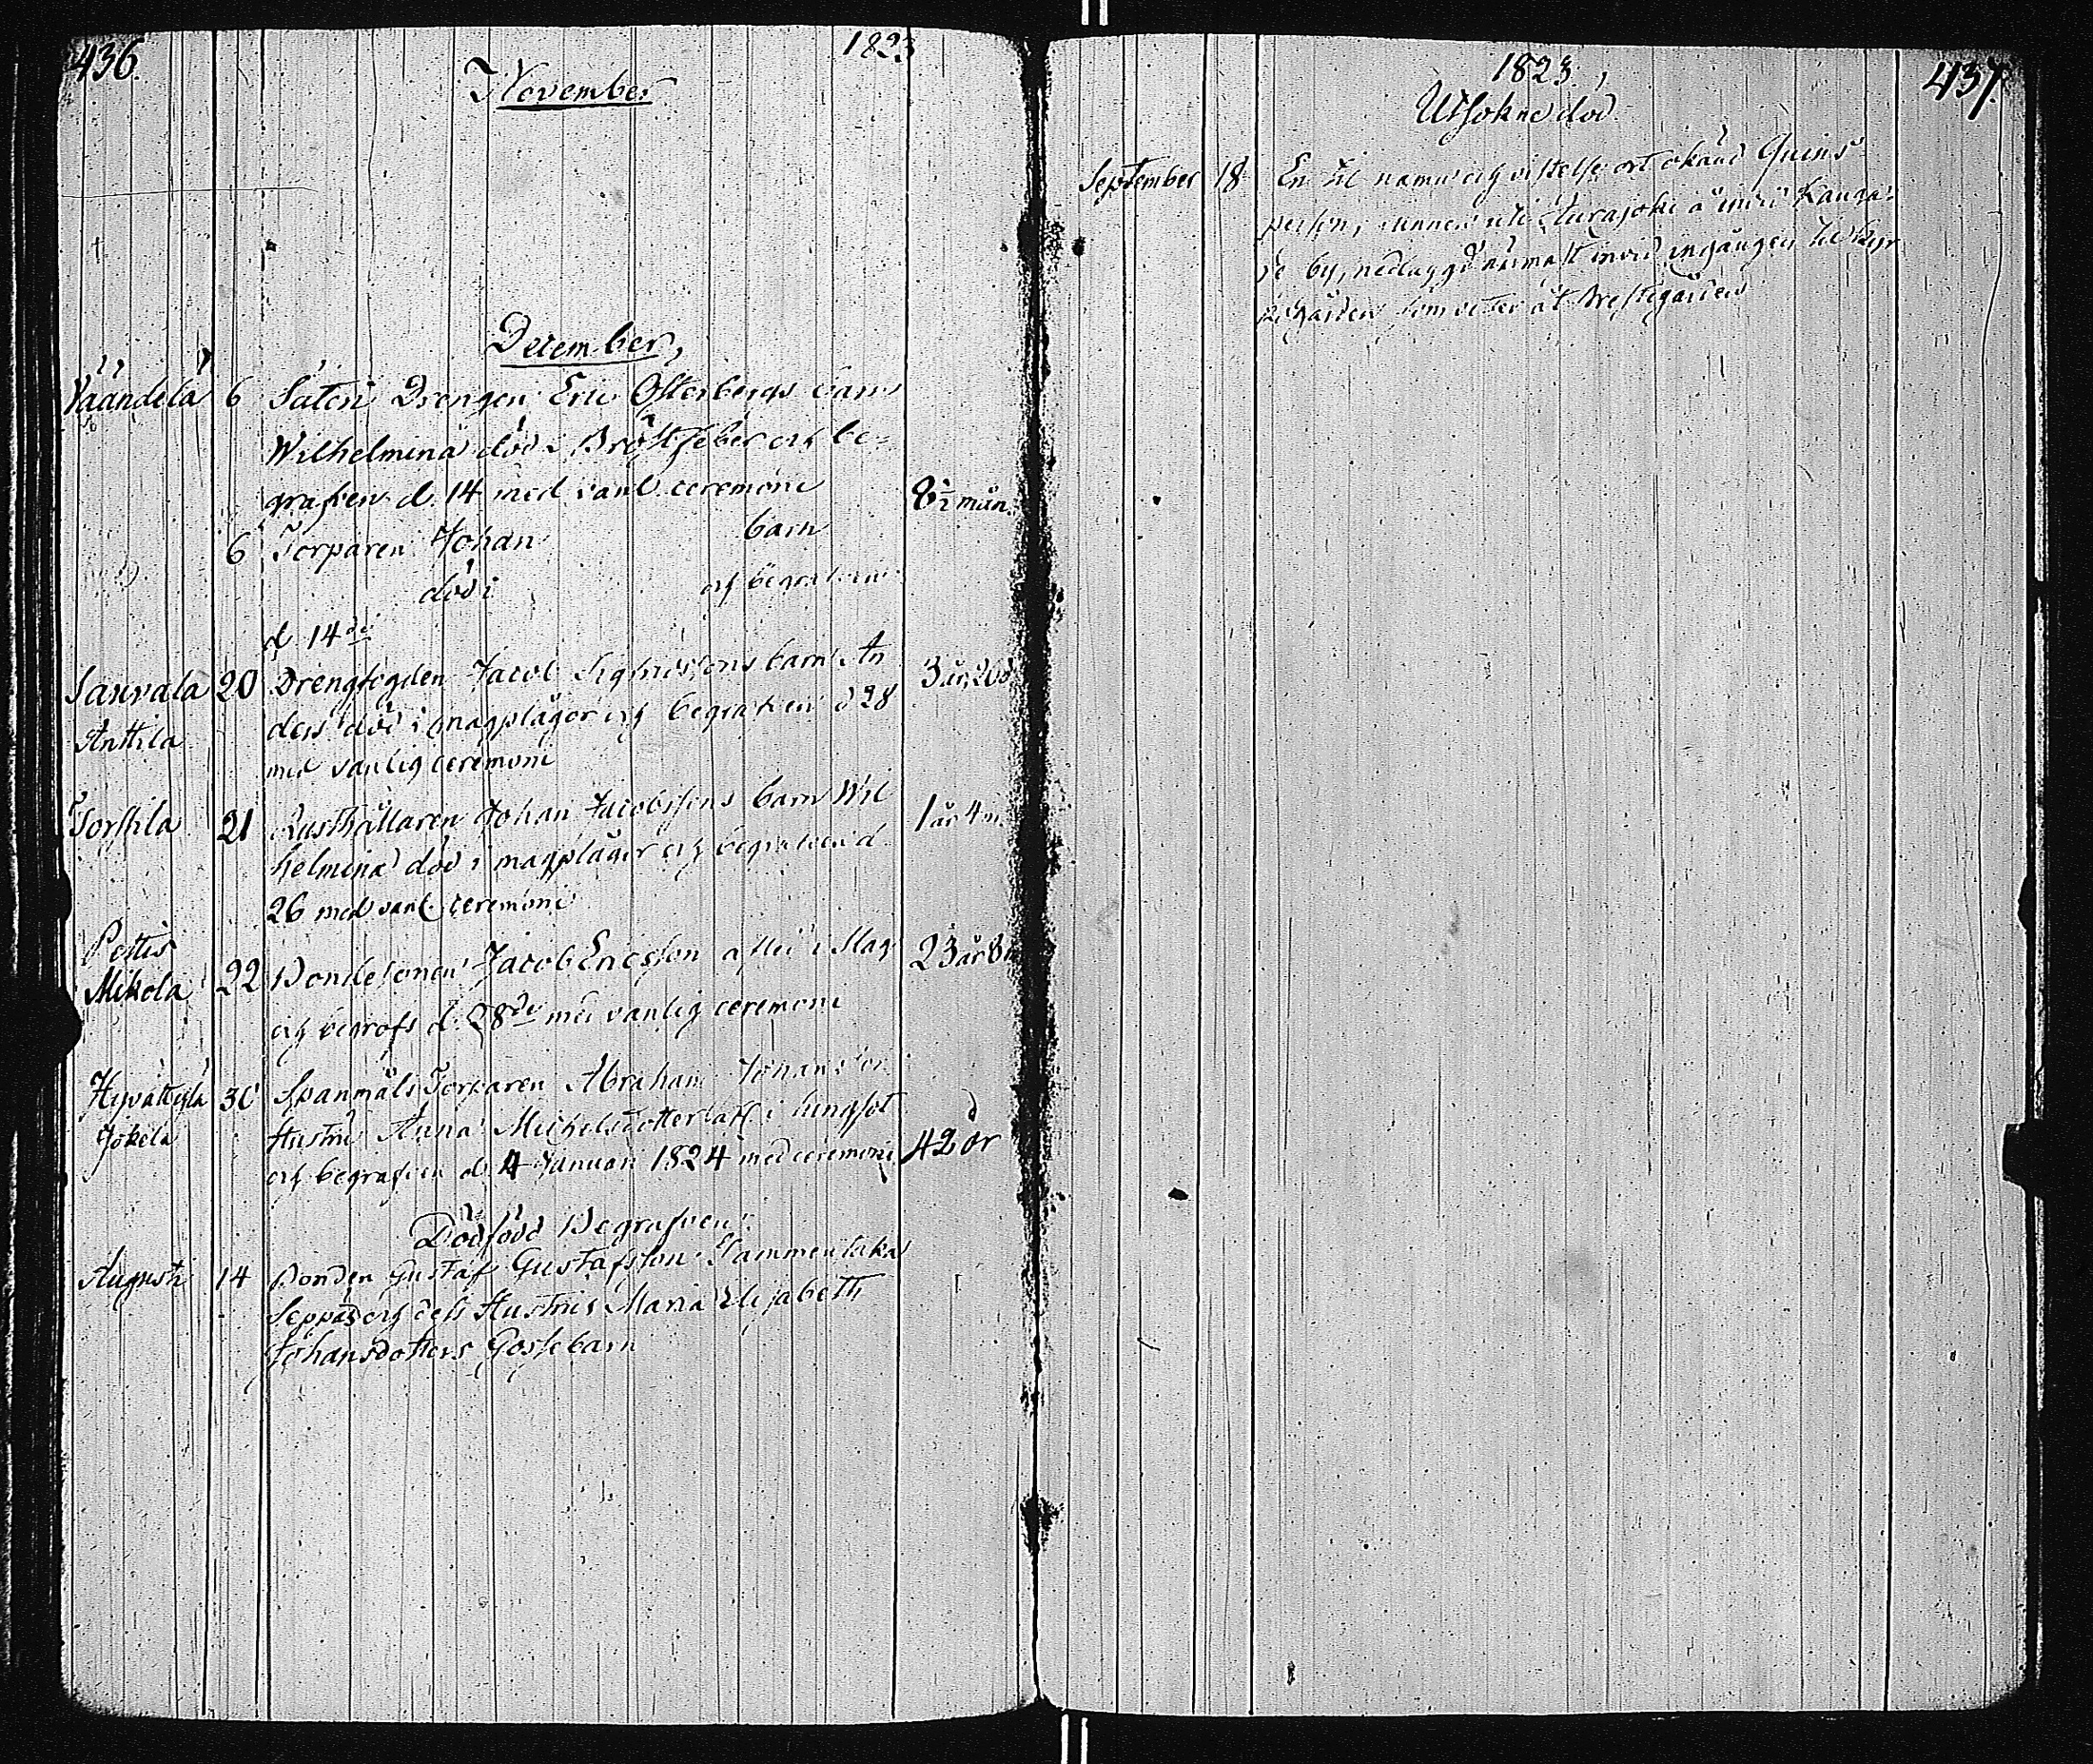 436.
1823
November
December,
Väändelä 6 Säteri Drengen Eric Österbergs barn
Wilhelmina död i Bröstfeber och be=
grafven d. 14 med vanl. ceremoni 8½ mån.
6 Torparen Johan barn
död i och begrafven
d 14de
Sauvala 20 Drengfogden Jacob Sigfridssons barn An
Anttila ders död i magplågor och begrafven d 28 3 år, 20 d
med vanlig ceremoni
Torttila 21 Rusthållaren Johan Jacobssons barn Wil
helmina död i magplågor och begrafven d. 1 år 4 m.
26 med vanl. ceremoni
Pettis
Mikola 22 Bondesonen Jacob Ericsson afled i Slag 23 år 8
och begrofs d. 28de med vanlig ceremoni
Hyvättylä 30 Spanmåls Torparen Abraham Johansson
Jokela Hustru Anna Michelsdotter i lungsot
och begrafven d. 4 Januari 1824 med ceremoni 42 år
Dödfödd Begrafven
Augusti 14 Bonden Gustaf Gustafsson
Seppäs och dess Hustrus Maria Elisabeth
Johansdotters Gossebarn
1823,
437.
Utsokne död
September 18 En til namn och vistelse ort okänd Quins
person, funnen uti Eurajoki å invid Kaut
by, nedlaggd närmast invid ingången til kyr
kogården som vetter åt Prestegården